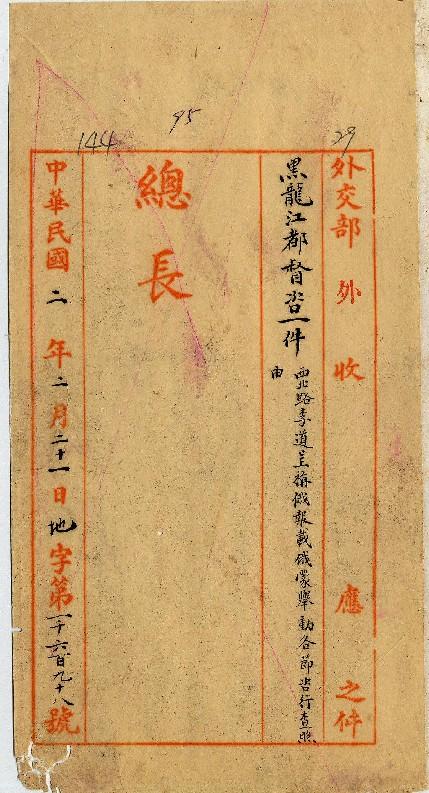 144
95
29
外交部外收應之件
黑龍江都督咨一件
西北路李道呈稱俄報載俄蒙舉動各節咨行查照
由
總長
中華民國二年二月二十一日地字第一千六百九十八號